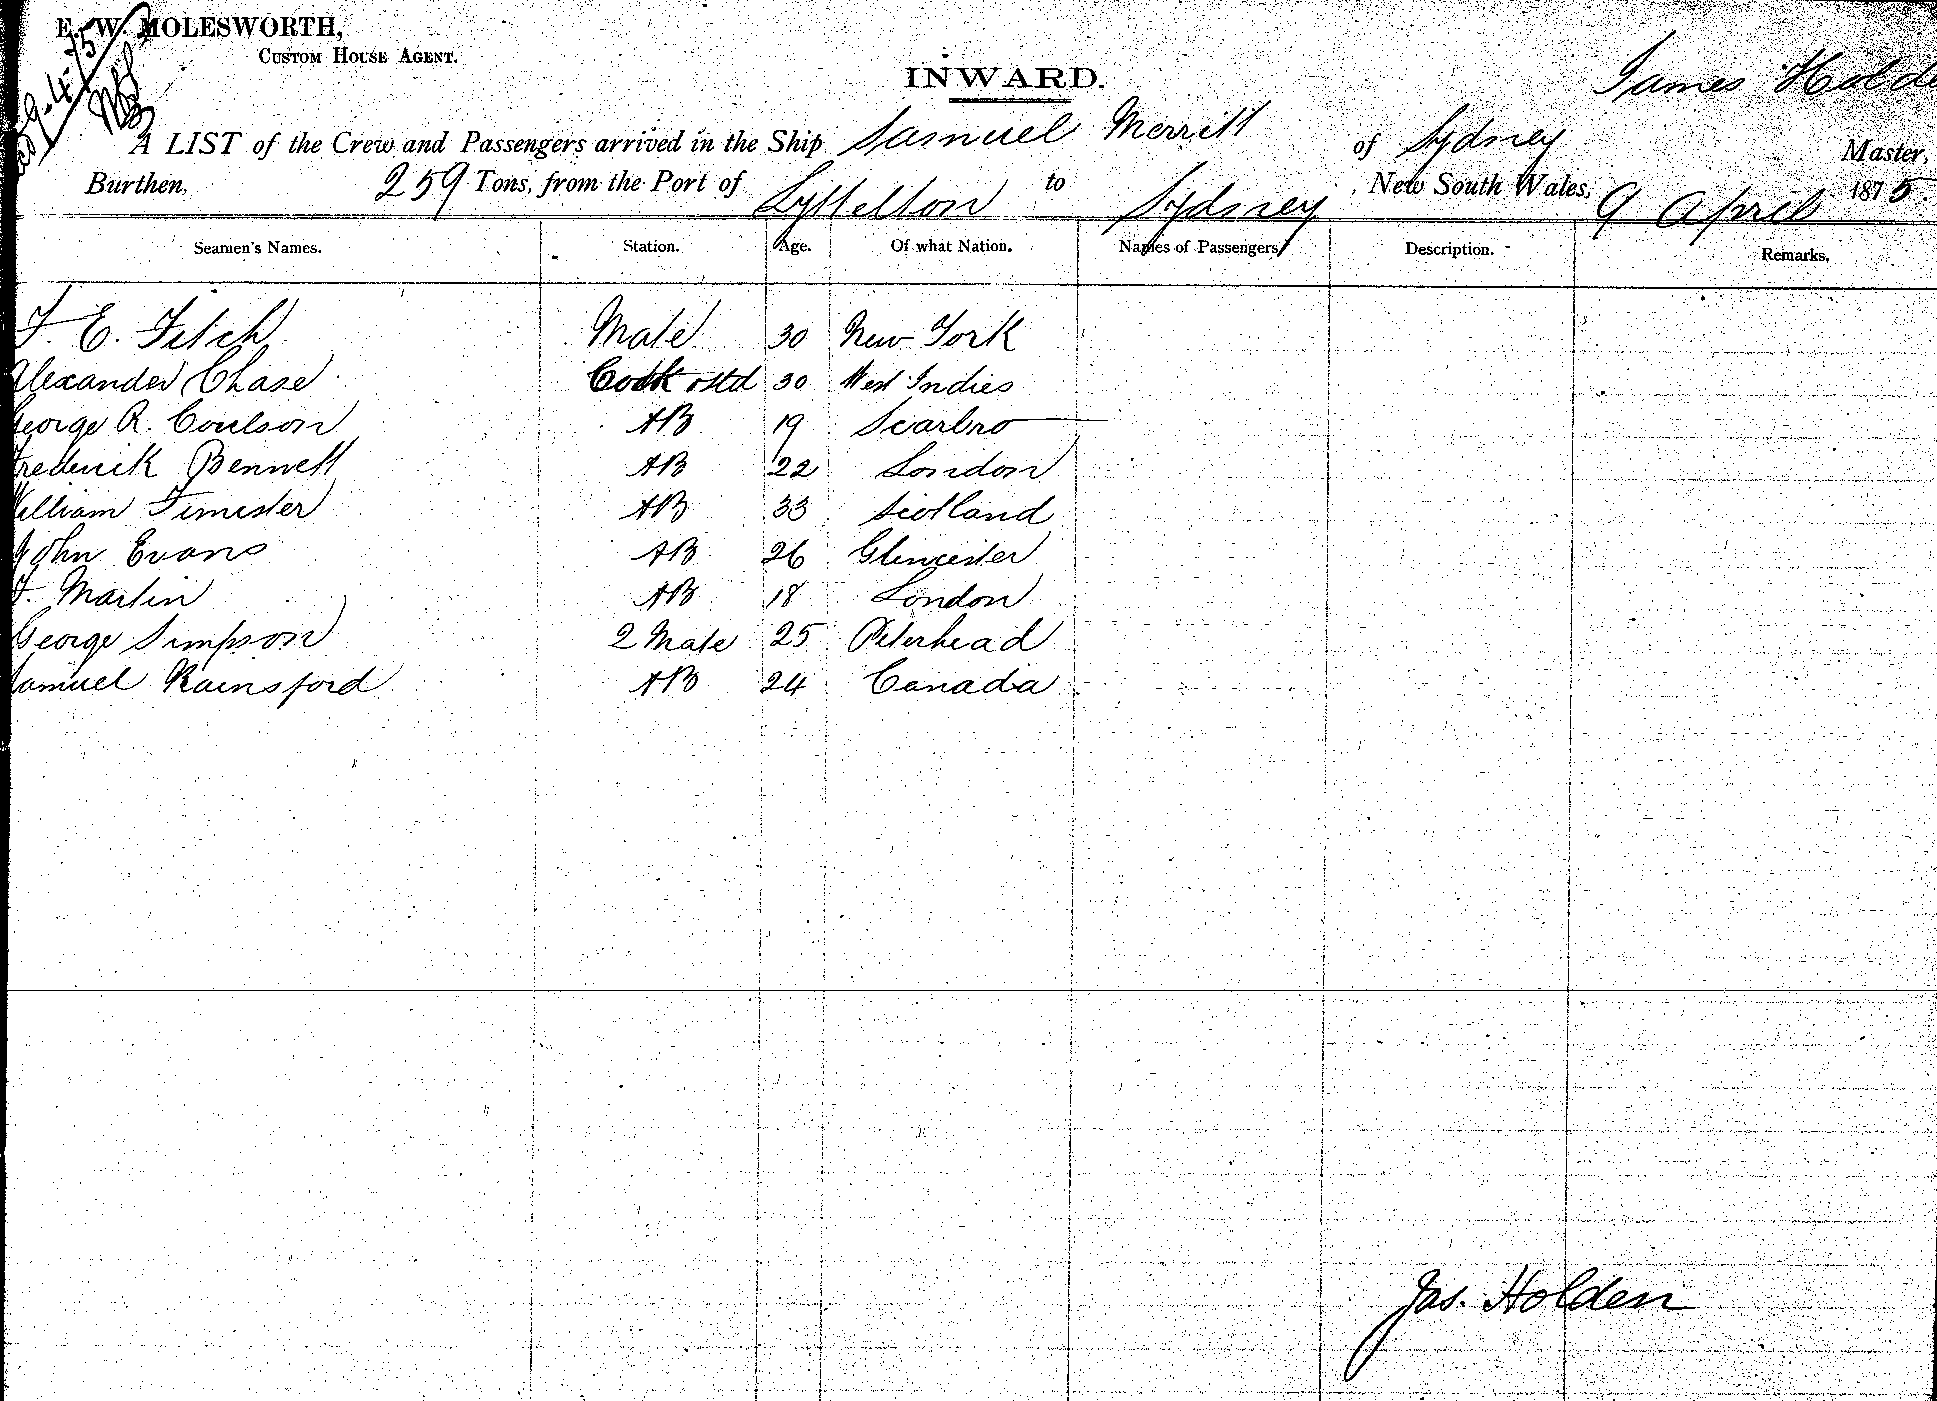 E. W. MOLESWORTH,
CUSTOM HOUSE AGENT.
9-4-75
INWARD.
James Holde
A LIST of the Crew and Passengers arrived in the Ship Samuel Merritt of Sydney Master,
Burthen, 259 Tons, from the Port of Lyttelton to Sydney New South Wales, 9 April 1875
Seamen's Names. Station. Age. Of what Nation. Names of Passengers Description. Remarks.
F. E. Fitch Mate 30 New York
Alexander Chase Cook & Std 30 West Indies
George R. Coulson AB 19 Scarbro
Frederick Bennett AB 22 London
William Fimister AB 33 Scotland
John Evans AB 26 Gloucester
F. Martin AB 18 London
George Simpson 2 Mate 25 Peterhead
Samuel Rainsford AB 24 Canada
Jas. Holden